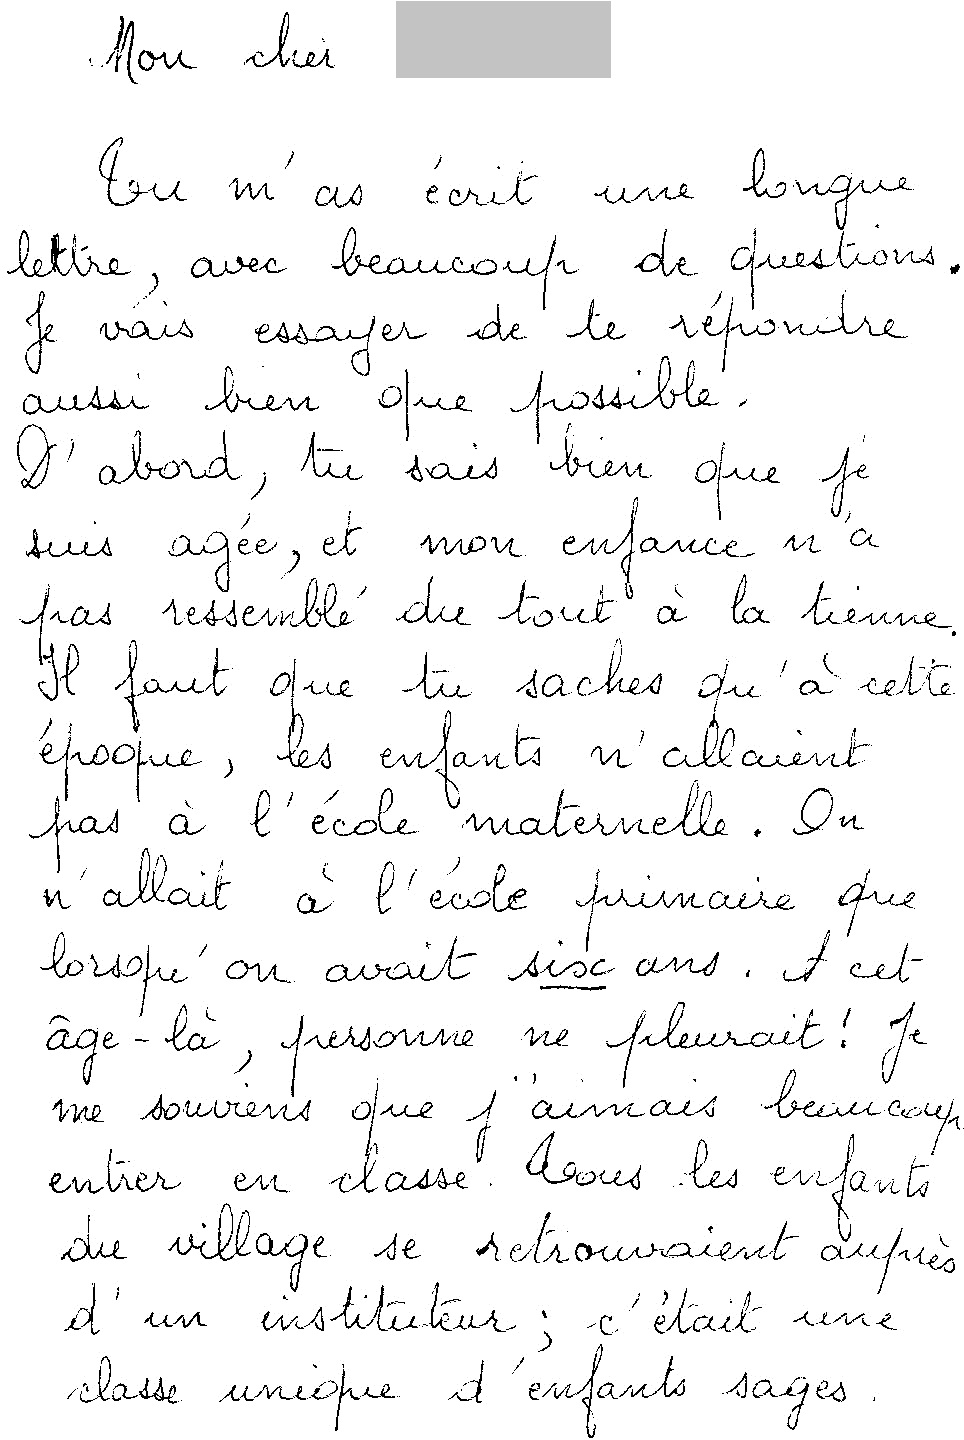 Mon cher
Tu m'as écrit une longue
lettre, avec beaucoup de questions.
Je vais essayer de te répondre
aussi bien que possible.
D'abord, tu sais bien que je
suis agée, et mon enfance n'a
pas ressemblé du tout à la tienne.
Il faut que tu saches qu'à cette
époque, les enfants n'allaient
pas à l'école maternelle. On
n'allait à l'école primaire que
lorsqu'on avait six ans. A cet
âge-là, personne ne pleurait! Je
me souviens que j'aimais beaucoup
entrer en classe. Tous les enfants
du village se retrouvaient auprès
d'un instituteur ; c'était une
classe unique d'enfants sages.